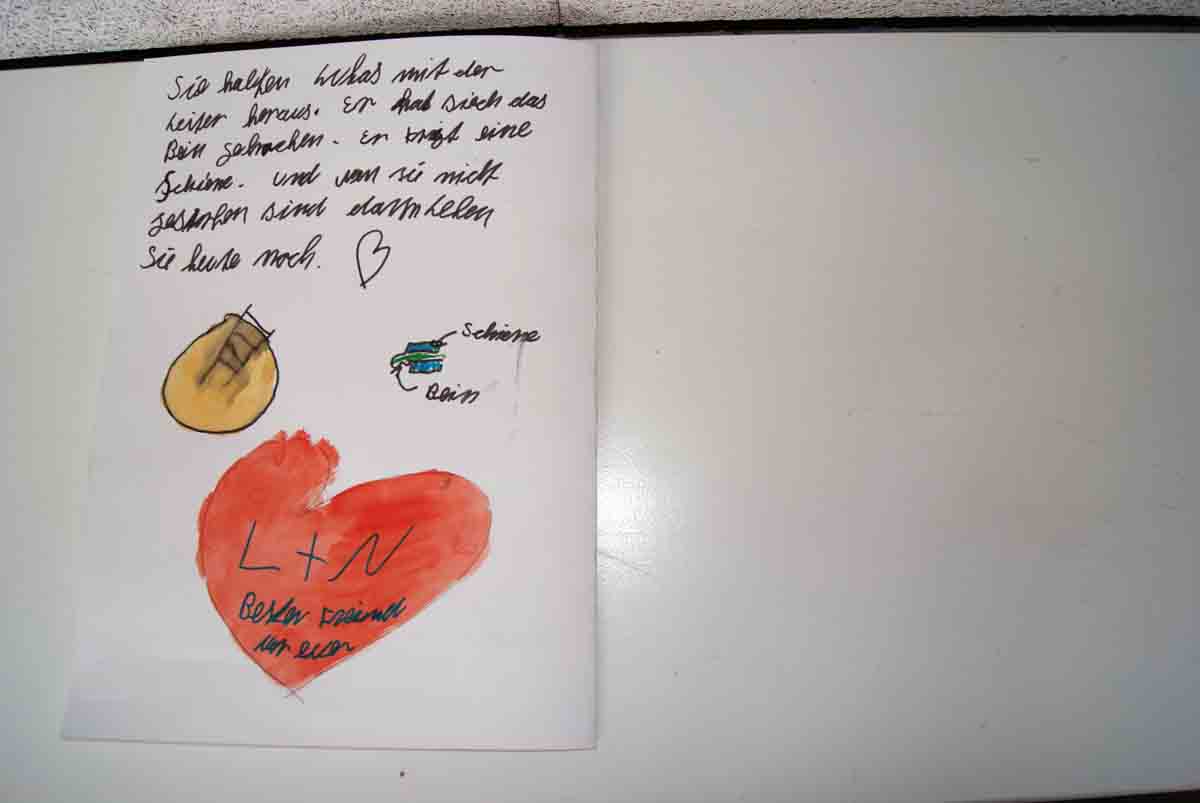 Sie halfen Lukas mit der
Leiter heraus. Er hat siech das
Bein gebrochen. Er krigt eine
Schiene. und wen sie nicht
gestorben sind dann Leben
Sie heute noch.
Schiene
Bein
L + N
Bester Freund